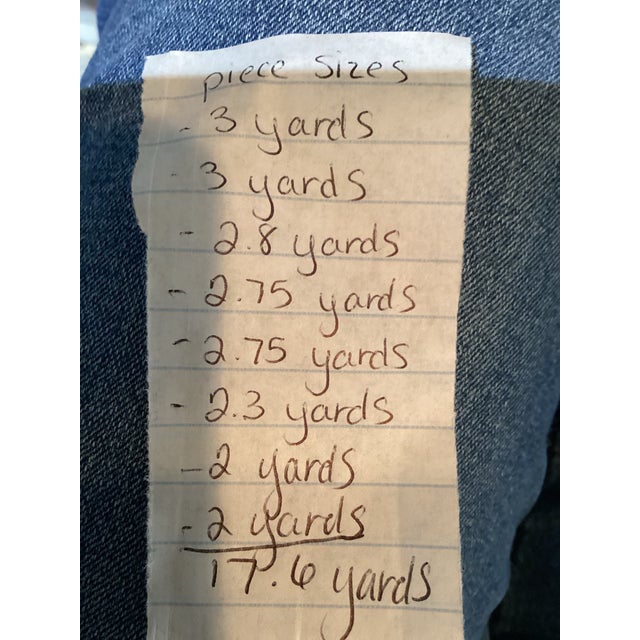 piece sizes
- 3 yards
- 3 yards
- 2.8 yards
- 2.75 yards
- 2.75 yards
- 2.3 yards
- 2 yards
- 2 yards
17.6 yards